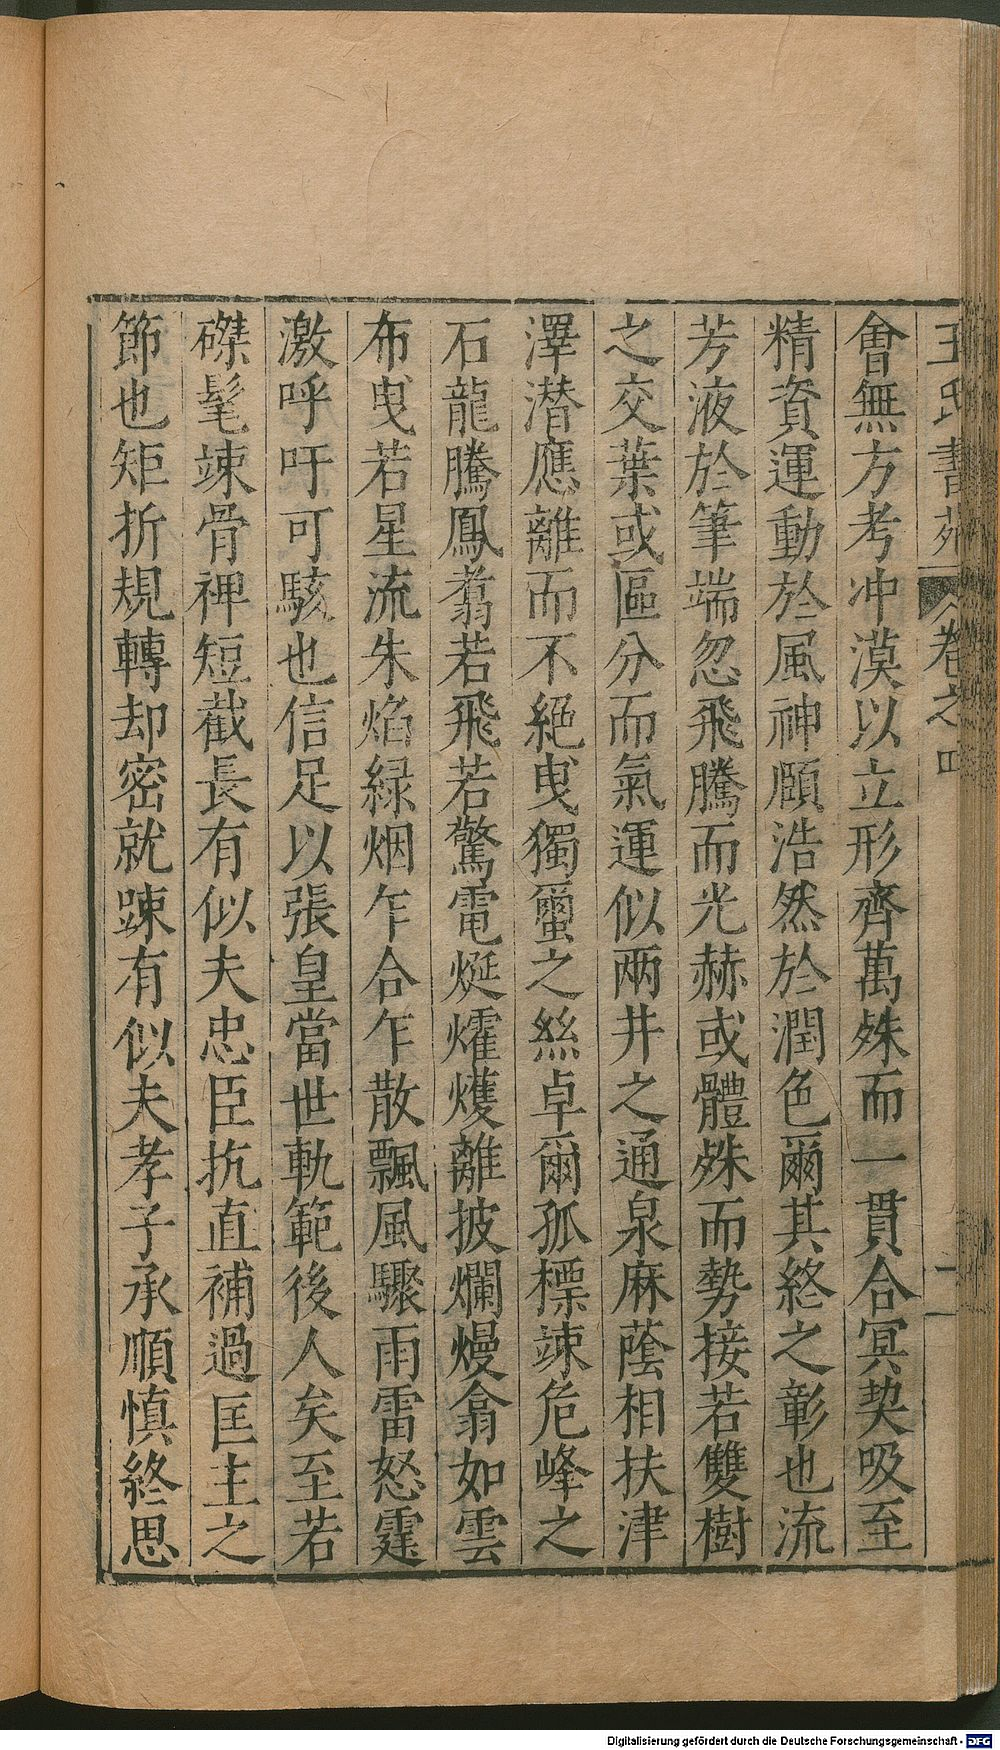 王氏書苑 卷之四 二
會無方考冲漠以立形齊萬殊而一貫合冥契吸至
精資運動於風神頤浩然於潤色爾其終之彰也流
芳液於筆端忽飛騰而光赫或體殊而勢接若雙樹
之交葉或區分而氣運似兩井之通泉麻蔭相扶津
澤潜應離而不絕曳獨蠒之絲卓爾孤標竦危峰之
石龍騰鳳翥若飛若驚電烻爠㸌離披爛熳翕如雲
布曳若星流朱焰緑烟乍合乍散飄風驟雨雷怒霆
激呼吁可駭也信足以張皇當世軌範後人矣至若
磔髦竦骨裨短截長有似夫忠臣抗直補過匡主之
節也矩折規轉却密就踈有似夫孝子承順慎終思
Digitalisierung gefördert durch die Deutsche Forschungsgemeinschaft - DFG